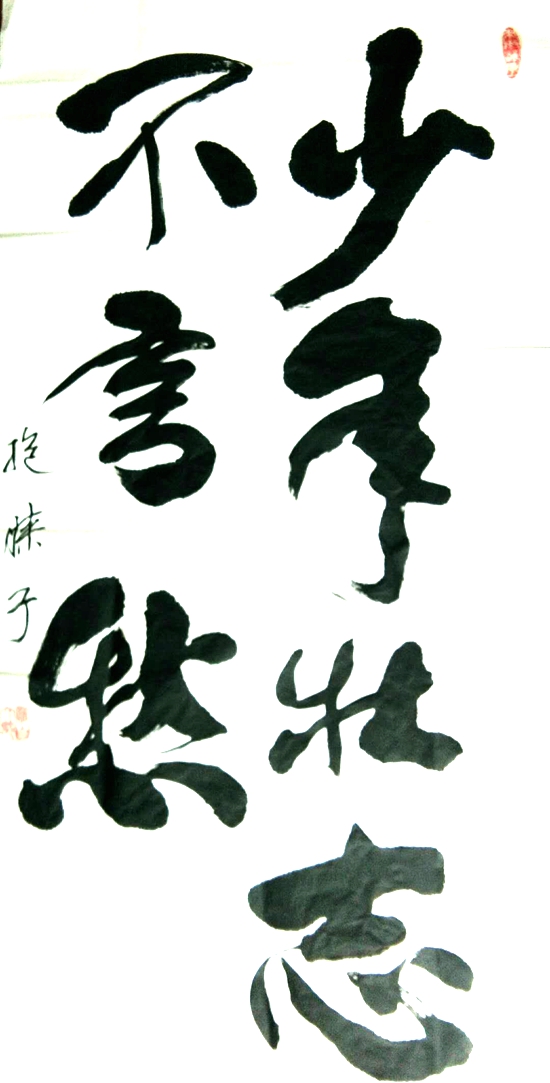 少年壮志
不言愁
抱朴子